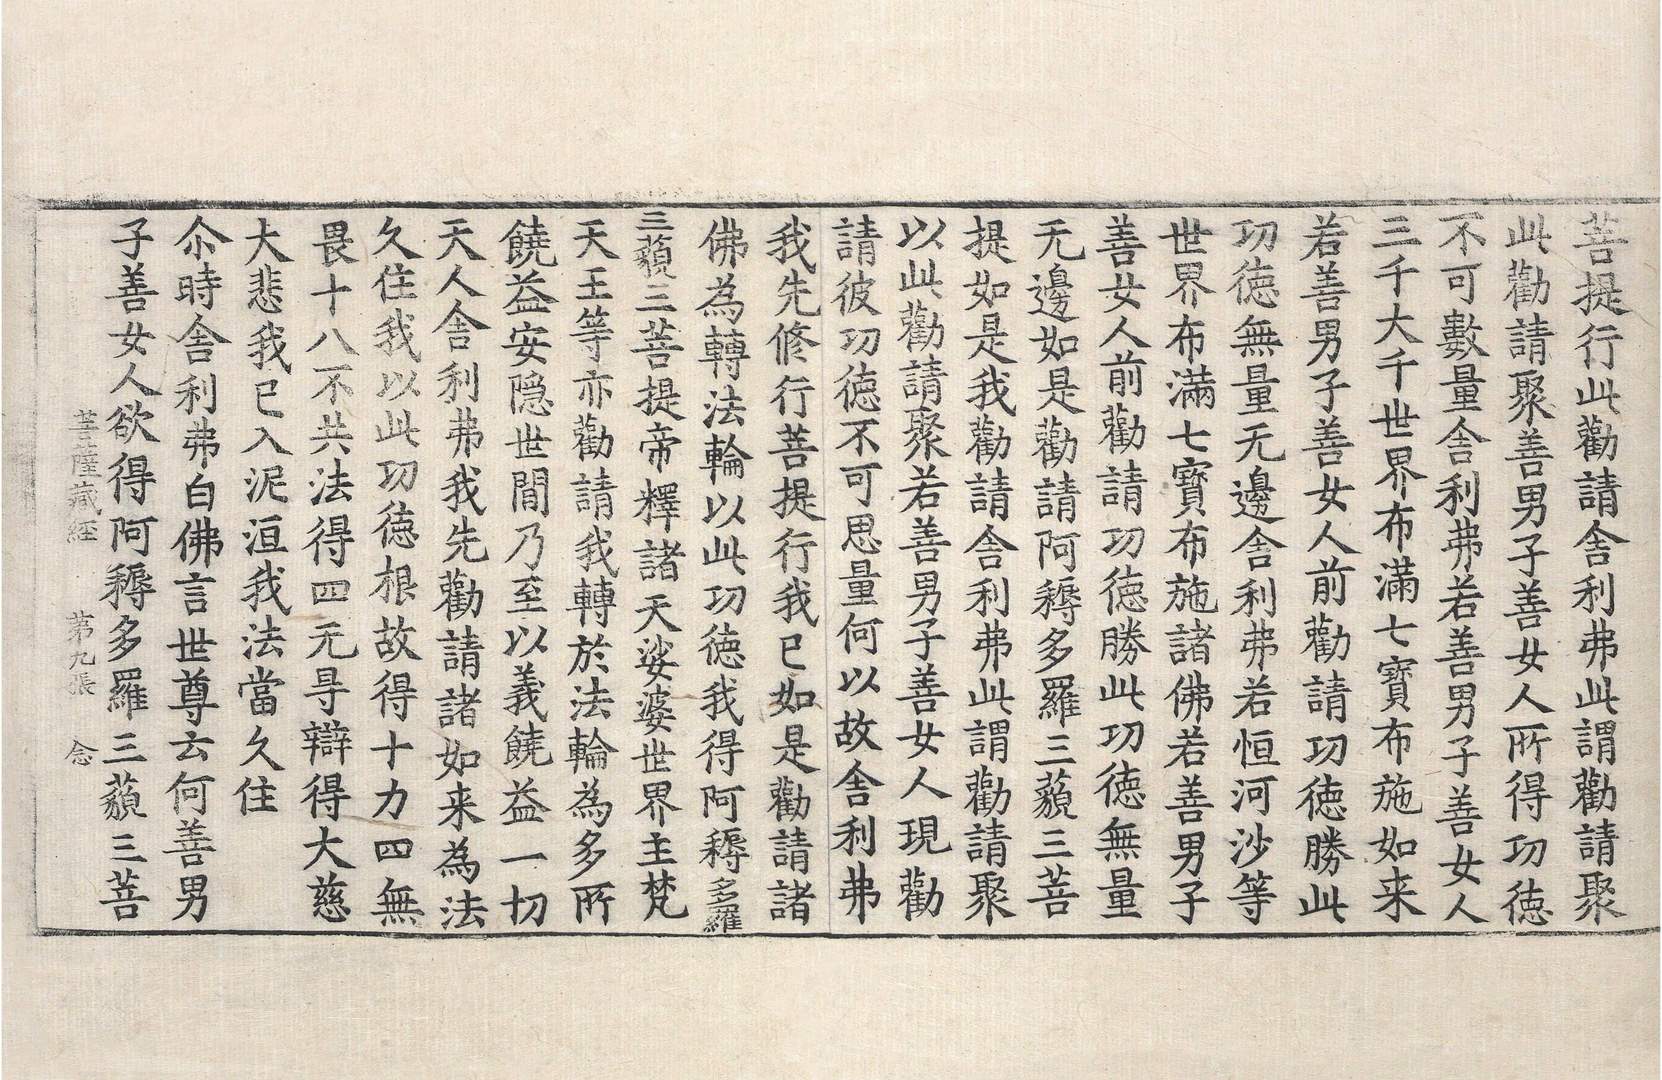 菩提行此勸請舍利弗此謂勸請聚
此勸請聚善男子善女人所得功德
不可數量舍利弗若善男子善女人
三千大千世界布滿七寳布施如来
若善男子善女人前勸請功徳勝此
功徳無量无邊舍利弗若恒河沙等
世界布滿七寳布施諸佛若善男子
善女人前勸請功徳勝此功徳無量
无邊如是勸請阿耨多羅三藐三菩
提如是我勸請舍利弗此謂勸請聚
以此勸請聚若善男子善女人現勸
請彼功徳不可思量何以故舍利弗
我先修行菩提行我已如是勸請諸
佛為轉法輪以此功徳我得阿耨多羅
三藐三菩提帝釋諸天娑婆世界主梵
天王等亦勸請我轉於法輪為多所
饒益安隱世間乃至以義饒益一切
天人舍利弗我先勸請諸如来為法
久住我以此功徳根故得十力四無
畏十八不共法得四无㝵辯得大慈
大悲我已入泥洹我法當久住
尒時舍利弗白佛言世尊云何善男
子善女人欲得阿耨多羅三藐三菩
菩薩藏経 第九張 念